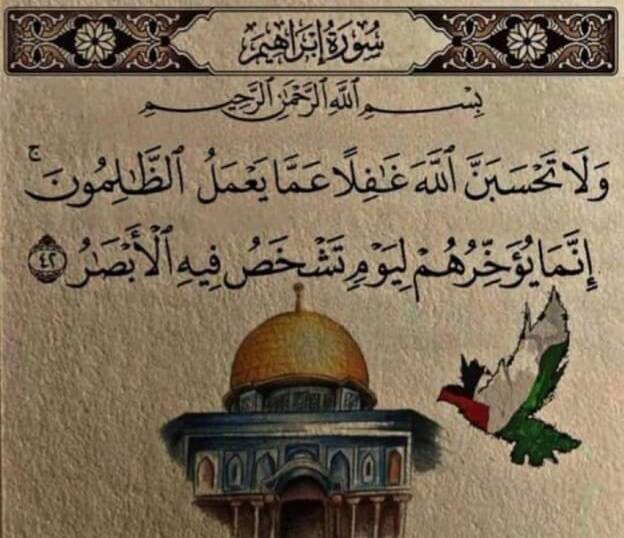 سُورَةُ إِبْرَاهِيمَ
بِسْمِ ٱللَّهِ ٱلرَّحْمَٰنِ ٱلرَّحِيمِ
وَلَا تَحْسَبَنَّ ٱللَّهَ غَٰفِلًا عَمَّا يَعْمَلُ ٱلظَّٰلِمُونَ ۚ
إِنَّمَا يُؤَخِّرُهُمْ لِيَوْمٍ تَشْخَصُ فِيهِ ٱلْأَبْصَٰرُ ٤٢